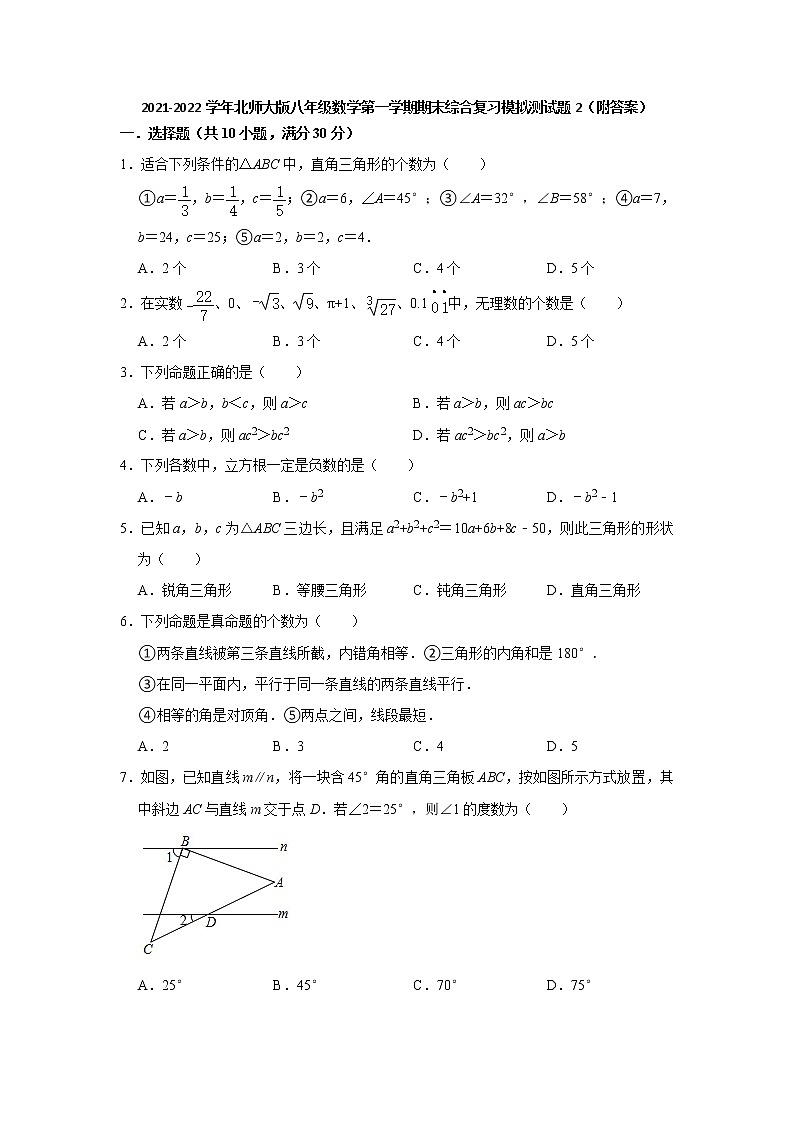 2021-2022学年北师大版八年级数学第一学期期末综合复习模拟测试题2（附答案）
一．选择题（共10小题，满分30分）
1．适合下列条件的△ABC中，直角三角形的个数为（　　）
①a＝1/3，b＝1/4，c＝1/5；②a＝6，∠A＝45°；③∠A＝32°，∠B＝58°；④a＝7，
b＝24，c＝25；⑤a＝2，b＝2，c＝4．
A．2个 B．3个 C．4个 D．5个
2．在实数﹣22/7、0、﹣√3、√9、π+1、∛27、0.10̇1̇中，无理数的个数是（　　）
A．2个 B．3个 C．4个 D．5个
3．下列命题正确的是（　　）
A．若a＞b，b＜c，则a＞c B．若a＞b，则ac＞bc
C．若a＞b，则ac²＞bc² D．若ac²＞bc²，则a＞b
4．下列各数中，立方根一定是负数的是（　　）
A．﹣b B．﹣b² C．﹣b²+1 D．﹣b²﹣1
5．已知a，b，c为△ABC三边长，且满足a²+b²+c²＝10a+6b+8c﹣50，则此三角形的形状
为（　　）
A．锐角三角形 B．等腰三角形 C．钝角三角形 D．直角三角形
6．下列命题是真命题的个数为（　　）
①两条直线被第三条直线所截，内错角相等．②三角形的内角和是180°．
③在同一平面内，平行于同一条直线的两条直线平行．
④相等的角是对顶角．⑤两点之间，线段最短．
A．2 B．3 C．4 D．5
7．如图，已知直线m∥n，将一块含45°角的直角三角板ABC，按如图所示方式放置，其
中斜边AC与直线m交于点D．若∠2＝25°，则∠1的度数为（　　）
B
n
1
A
m
2
D
C
A．25° B．45° C．70° D．75°